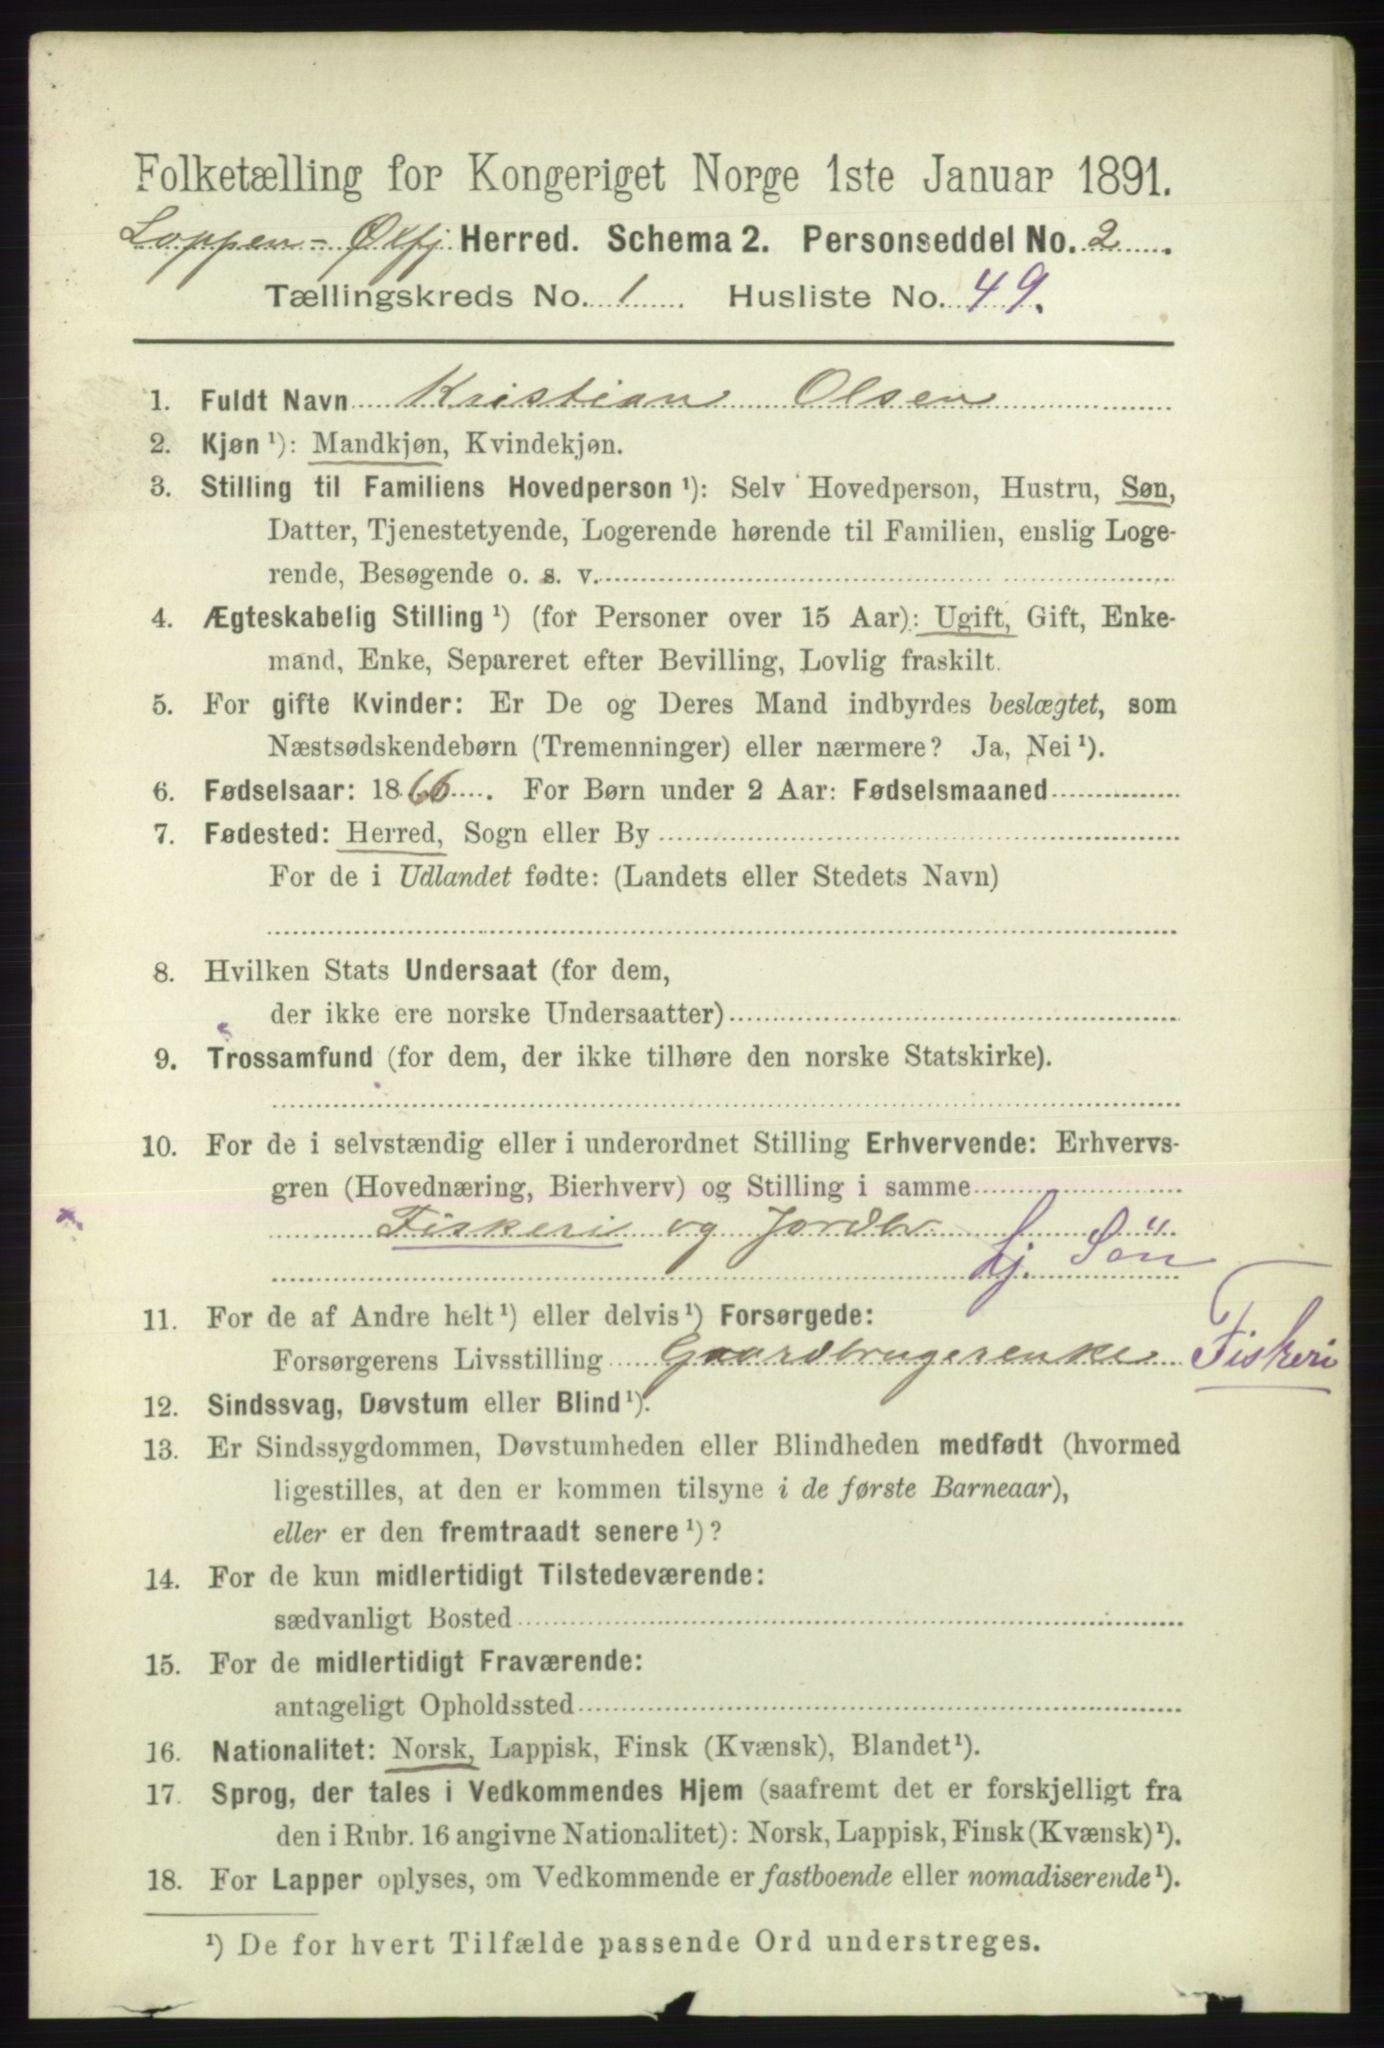 Folketælling for Kongeriget Norge 1ste Januar 1891.
Loppen - Øxfj Herred. Schema 2. Personseddel No. 2
Tællingskreds No. 1 Husliste No. 49.
1. Fuldt Navn Kristian Olsen
2. Kjøn ¹): Mandkjøn, Kvindekjøn.
3. Stilling til Familiens Hovedperson ¹): Selv Hovedperson, Hustru, Søn,
Datter, Tjenestetyende, Logerende hørende til Familien, enslig Loge-
rende, Besøgende o. s. v.
4. Ægteskabelig Stilling ¹) (for Personer over 15 Aar): Ugift, Gift, Enke-
mand, Enke, Separeret efter Bevilling, Lovlig fraskilt.
5. For gifte Kvinder: Er De og Deres Mand indbyrdes beslægtet, som
Næstsødskendebørn (Tremenninger) eller nærmere? Ja, Nei ¹).
6. Fødselsaar: 1866. For Børn under 2 Aar: Fødselsmaaned
7. Fødested: Herred, Sogn eller By
For de i Udlandet fødte: (Landets eller Stedets Navn)
8. Hvilken Stats Undersaat (for dem,
der ikke ere norske Undersaatter)
9. Trossamfund (for dem, der ikke tilhøre den norske Statskirke).
10. For de i selvstændig eller i underordnet Stilling Erhvervende: Erhvervs-
gren (Hovednæring, Bierhverv) og Stilling i samme
Fiskeri og Jordbr
hj. Søn
11. For de af Andre helt ¹) eller delvis ¹) Forsørgede:
Forsørgerens Livsstilling Gaardbrugerenke Fiskeri
12. Sindssvag, Døvstum eller Blind ¹).
13. Er Sindssygdommen, Døvstumheden eller Blindheden medfødt (hvormed
ligestilles, at den er kommen tilsyne i de første Barneaar),
eller er den fremtraadt senere ¹)?
14. For de kun midlertidigt Tilstedeværende:
sædvanligt Bosted
15. For de midlertidigt Fraværende:
antageligt Opholdssted
16. Nationalitet: Norsk, Lappisk, Finsk (Kvænsk), Blandet ¹).
17. Sprog, der tales i Vedkommendes Hjem (saafremt det er forskjelligt fra
den i Rubr. 16 angivne Nationalitet): Norsk, Lappisk, Finsk (Kvænsk) ¹).
18. For Lapper oplyses, om Vedkommende er fastboende eller nomadiserende ¹).
¹) De for hvert Tilfælde passende Ord understreges.